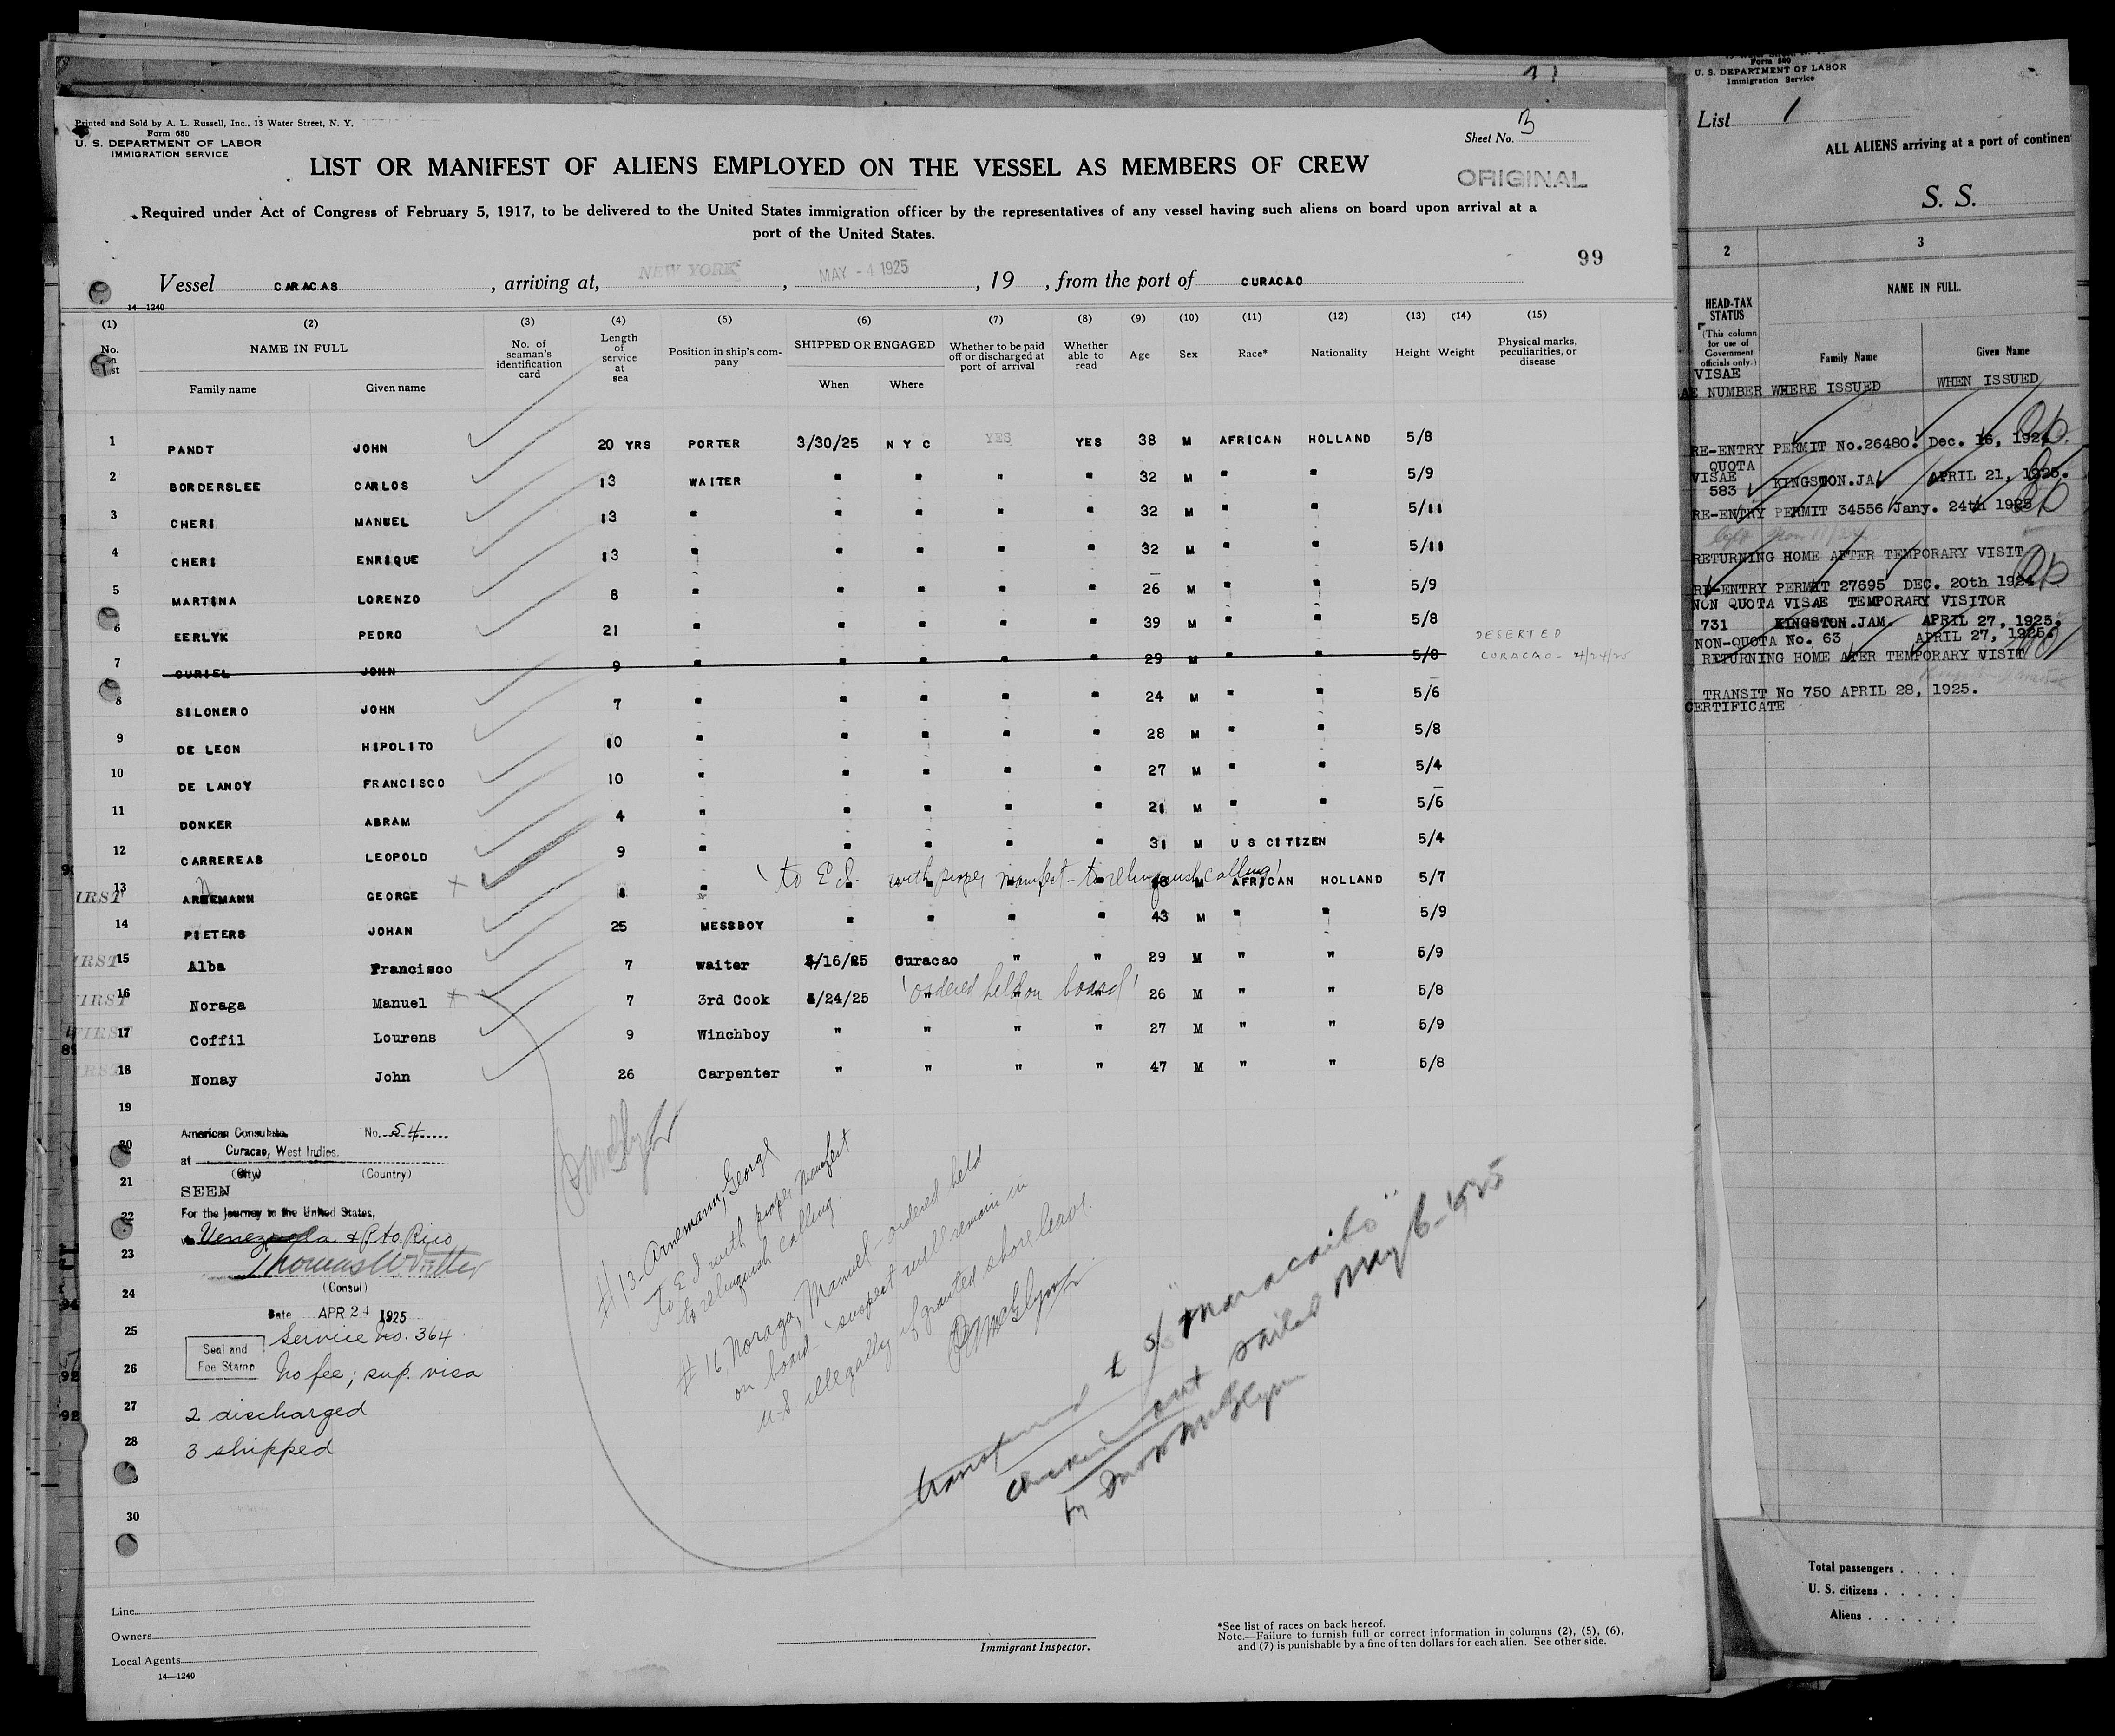 Printed and Sold by A. L. Russell, Inc., 13 Water Street, N. Y.
Form 680
U. S. DEPARTMENT OF LABOR
IMMIGRATION SERVICE
Sheet No. 3
LIST OR MANIFEST OF ALIENS EMPLOYED ON THE VESSEL AS MEMBERS OF CREW
ORIGINAL
Required under Act of Congress of February 5, 1917, to be delivered to the United States immigration officer by the representatives of any vessel having such aliens on board upon arrival at a
port of the United States.
99
Vessel CARACAS, arriving at, NEW YORK, MAY - 4 1925, 19 , from the port of CURACAO
14—1240
(1) (2) (3) (4) (5) (6) (7) (8) (9) (10) (11) (12) (13) (14) (15)
No. NAME IN FULL No. of seaman's identification card Length of service at sea Position in ship's company SHIPPED OR ENGAGED Whether to be paid off or discharged at port of arrival Whether able to read Age Sex Race* Nationality Height Weight Physical marks, peculiarities, or disease
Family name Given name When Where
1 PANDT JOHN 20 YRS PORTER 3/30/25 N Y C YES YES 38 M AFRICAN HOLLAND 5/8
2 BORDERSLEE CARLOS 13 WAITER " " " " 32 M " " 5/9
3 CHERI MANUEL 13 " " " " " 32 M " " 5/11
4 CHERI ENRIQUE 13 " " " " " 32 M " " 5/11
5 MARTINA LORENZO 8 " " " " " 26 M " " 5/9
6 EERLYK PEDRO 21 " " " " " 39 M " " 5/8
7 CURIEL JOHN 9 " " " " " 29 M " " 5/8 DESERTED CURACAO - 4/24/25
8 SILONERO JOHN 7 " " " " " 24 M " " 5/6
9 DE LEON HIPOLITO 10 " " " " " 28 M " " 5/8
10 DE LANOY FRANCISCO 10 " " " " " 27 M " " 5/4
11 DONKER ABRAM 4 " " " " " 21 M " " 5/6
12 CARREREAS LEOPOLD 9 " " " " " 31 M U S CITIZEN 5/4
'to E.I. with proper manifest - to relinquish calling'
13 ARNEMANN GEORGE " " " " " M AFRICAN HOLLAND 5/7
14 PIETERS JOHAN 25 MESSBOY " " " " 43 M " " 5/9
15 Alba Francisco 7 waiter 4/16/25 Curacao " " 29 M " " 5/9
16 Noraga Manuel 7 3rd Cook /24/25 " " " 26 M " " 5/8
'ordered held on board'
17 Coffil Lourens 9 Winchboy " " " " 27 M " " 5/9
18 Nonay John 26 Carpenter " " " " 47 M " " 5/8
19
20
21
22
23
24
25
26
27
28
30
American Consulate No. 54
at Curacao, West Indies.
(City) (Country)
SEEN
For the journey to the United States,
Venezuela & Pto. Rico
(Consul)
Date APR 24 1925
Seal and Fee Stamp
Service no. 364
No fee; sup. visa
2 discharged
3 shipped
# 13 - Arnemann, George
to E I with proper manifest
to relinquish calling.
# 16 Noraga, Manuel - ordered held
on board - suspect will remain in
U.S. illegally if granted shore leave.
transferred t s/s "Maracaibo"
sailed May 6 - 1925
Line
Owners
Local Agents
14—1240
Immigrant Inspector.
*See list of races on back hereof.
Note.—Failure to furnish full or correct information in columns (2), (5), (6),
and (7) is punishable by a fine of ten dollars for each alien. See other side.
Form 500
U. S. DEPARTMENT OF LABOR
Immigration Service
List 1
ALL ALIENS arriving at a port of continen
S. S.
2 3
HEAD-TAX STATUS
(This column for use of Government officials only.)
NAME IN FULL
Family Name Given Name
VISAE
NUMBER WHERE ISSUED WHEN ISSUED
RE-ENTRY PERMIT No.26480. Dec. 16, 1924.
QUOTA
VISAE
583 KINGSTON.JA. APRIL 21, 1925.
RE-ENTRY PERMIT 34556 Jany. 24th 1925
RETURNING HOME AFTER TEMPORARY VISIT
RE-ENTRY PERMIT 27695 DEC. 20th 1924
NON QUOTA VISAE TEMPORARY VISITOR
731 KINGSTON.JAM. APRIL 27, 1925.
NON-QUOTA No. 63 APRIL 27, 1925.
RETURNING HOME ATER TEMPORARY VISIT
TRANSIT No 750 APRIL 28, 1925.
CERTIFICATE
Total passengers
U. S. citizens
Aliens